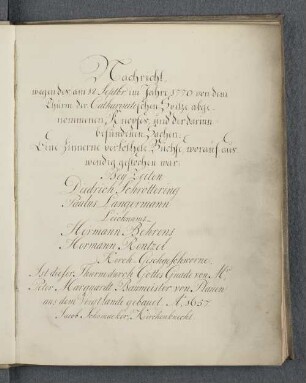 Nachricht,
wegen der am 18 Septbr im Jahre 1770 von dem
Thurm der Catharinitschen Spitze abge-
nommenen Knopfes, und der darinn
befundenen Sachen.
Eine zinnerne verlöthete Büchse, worauf aus-
wendig gestochen war:
Bey Zeiten
Diedrich Schrottering
Paulus Langermann
Leichnams
Hermann Behrens
Hermann Rentzel
Kirch-Geschworne
Ist dieser Thurm durch Gottes Gnade von Mr
Peter Marquardt, Baumeister von Plauen
aus dem Voigtlande gebauet Ao 1657
Jacob Schumacher, Kirchenknecht